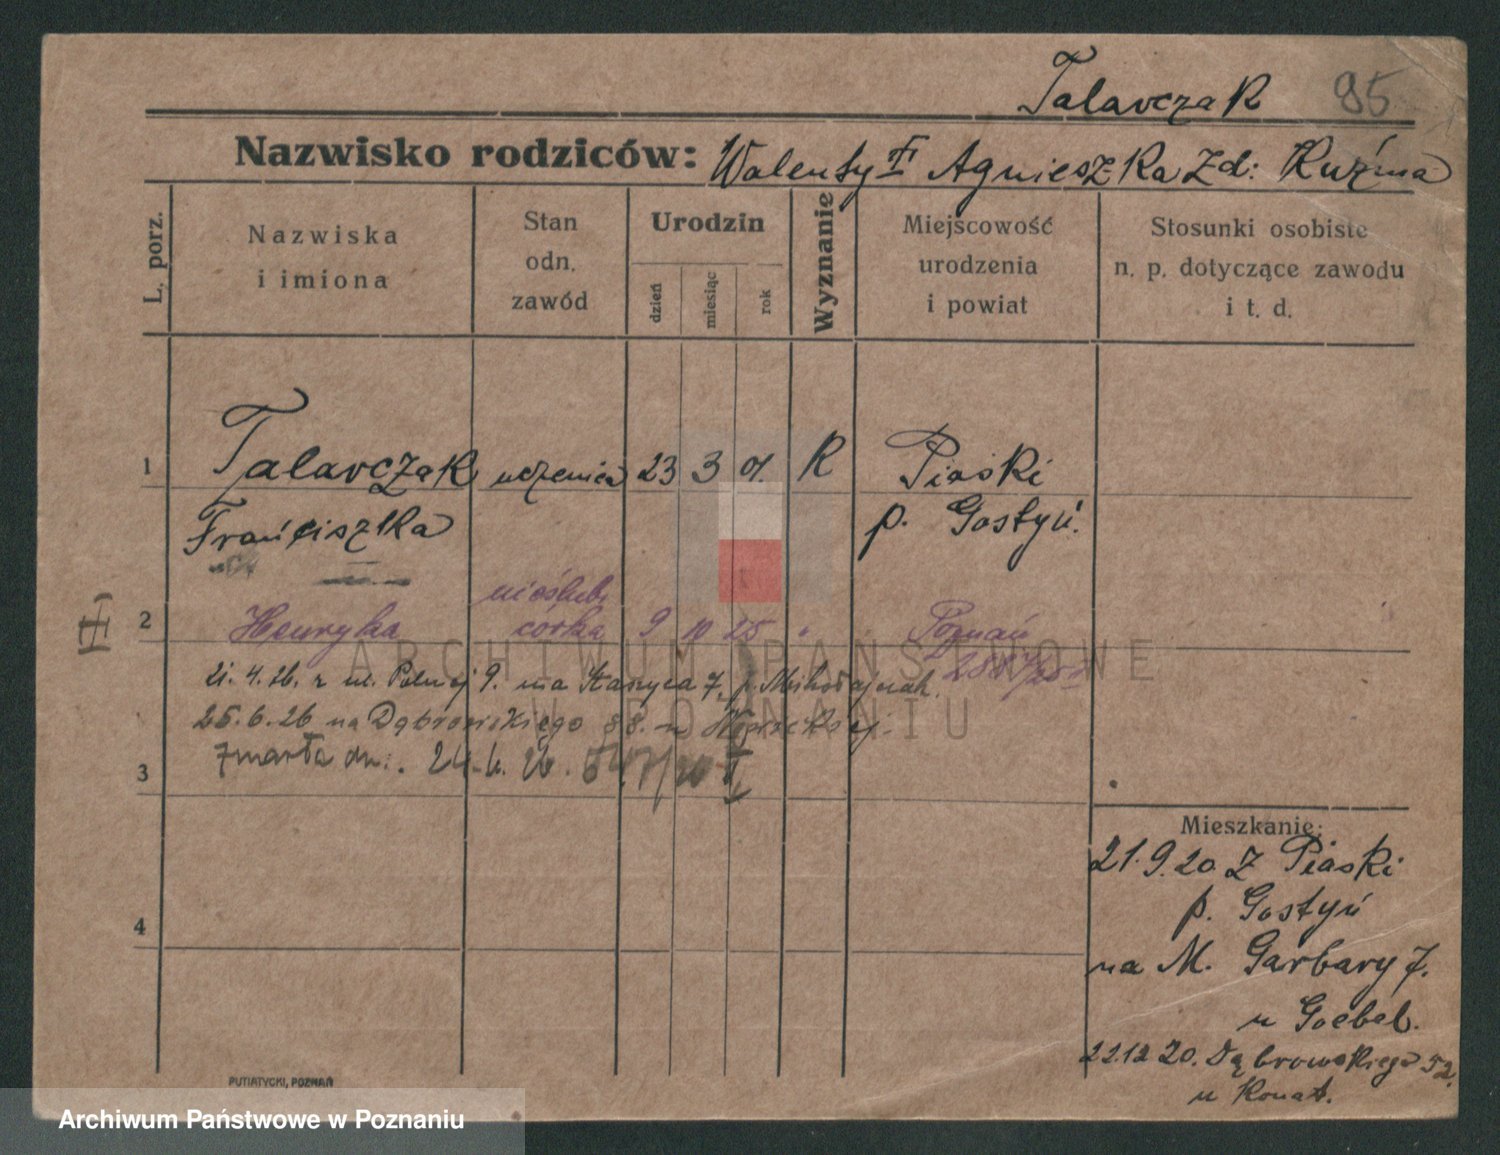 Talarczak 95
Nazwisko rodziców: Walenty Agnieszka zd: Kuźma
L. porz.
Nazwiska i imiona
Stan odn. zawód
Urodzin
dzień
miesiąc
rok
Wyznanie
Miejscowość urodzenia i powiat
Stosunki osobiste n. p. dotyczące zawodu i t. d.
1 Talarczak uczenica 23 3 01. R Piaski
Franciszka p. Gostyń.
nieślub.
2 Henryka córka 9 10 25 " Poznań
21. 4. 26. z ul. Polnej 9. na Staszyca 7. p. Mikołajczak.
25. 6. 26 na Dąbrowskiego 88. u
3 zmarła dn. 24. 6. 26.
4
Mieszkanie:
21. 9. 20 z Piaski
p. Gostyń
na M. Garbary 7.
u Goebel.
22.12 20. Dąbrowskiego 52.
u Konat.
PUTIATYCKI, POZNAŃ
ARCHIWUM PAŃSTWOWE
W POZNANIU
Archiwum Państwowe w Poznaniu